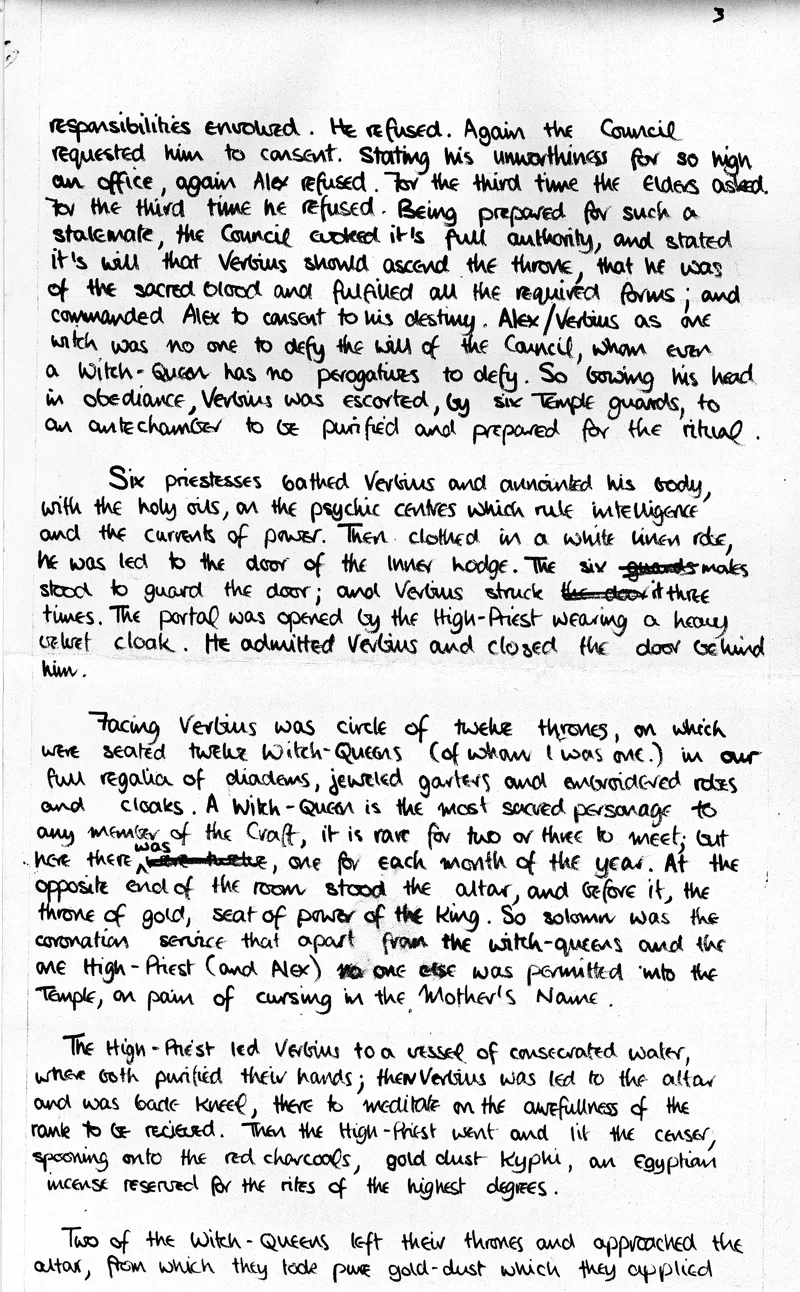 3
responsibilities envolved. He refused. Again the Council
requested him to consent. Stating his unworthiness for so high
an office, again Alex refused. For the third time the Elders asked.
For the third time he refused. Being prepared for such a
stalemate, the Council evoked it's full authority, and stated
it's will that Verbius should ascend the throne, that he was
of the sacred blood and fulfilled all the required forms; and
commanded Alex to consent to his destiny. Alex/Verbius as one
witch was no one to defy the will of the Council, whom even
a Witch-Queen has no perogatives to defy. So bowing his head
in obediance, Verbius was escorted, by six Temple guards, to
an antechamber to be purified and prepared for the ritual.
Six priestesses bathed Verbius and annointed his body,
with the holy oils, on the psychic centres which rule intelligence
and the currents of power. Then clothed in a white linen robe,
he was led to the door of the Inner Lodge. The six guards males
stood to guard the door; and Verbius struck the door it three
times. The portal was opened by the High-Priest wearing a heavy
velvet cloak. He admitted Verbius and closed the door behind
him.
Facing Verbius was circle of twelve thrones, on which
were seated twelve Witch-Queens (of whom I was one.) in our
full regalia of diadems, jeweled garters and embroidered robes
and cloaks. A Witch-Queen is the most sacred personage to
any member of the Craft, it is rare for two or three to meet; but
here there was were twelve, one for each month of the year. At the
opposite end of the room stood the altar, and before it, the
throne of gold, seat of power of the King. So solomn was the
coronation service that apart from the witch-queens and the
one High-Priest (and Alex) no one else was permitted into the
Temple, on pain of cursing in the Mother's Name.
The High-Priest led Verbius to a vessel of consecrated water,
where both purified their hands; then Verbius was led to the altar
and was bade kneel, there to meditate on the awefullness of the
rank to be recieved. Then the High-Priest went and lit the censer,
spooning onto the red charcoals, gold dust Kyphi, an Egyptian
incense reserved for the rites of the highest degrees.
Two of the Witch-Queens left their thrones and approached the
altar, from which they took pure gold-dust which they applied